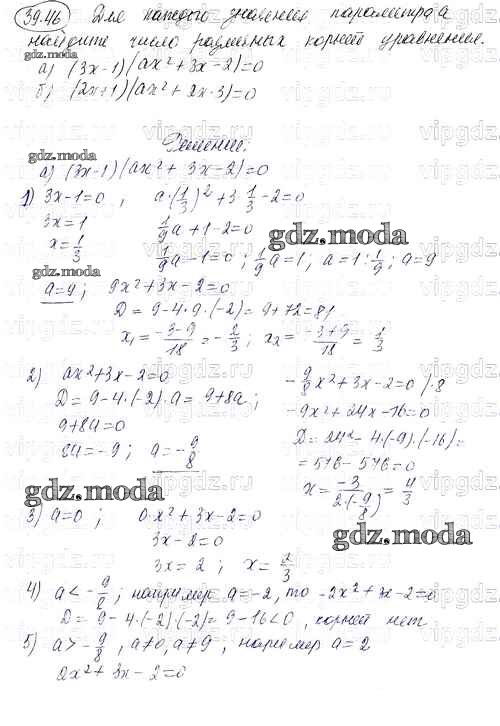 39.46 Для каждого значения параметра а
найдите число различных корней уравнения.
а) (3x-1)(ax²+3x-2)=0
б) (2x+1)(ax²+2x-3)=0
Решение:
gdz.moda
а) (3x-1)(ax²+3x-2)=0
1) 3x-1=0 , a·(1/3)²+3·1/3-2=0
3x=1 1/9a+1-2=0
gdz.moda
x=1/3 1/9a-1=0 ; 1/9a=1; a=1:1/9; a=9
gdz.moda
a=9; 9x²+3x-2=0
D=9-4·9·(-2)=9+72=81
x₁=(-3-9)/18=-2/3; x₂=(-3+9)/18=1/3
2) ax²+3x-2=0 -9/8x²+3x-2=0 /·8
D=9-4·(-2)·a=9+8a; -9x²+24x-16=0
9+8a=0 D=24²-4·(-9)·(-16)=
8a=-9; a=-9/8 =576-576=0
x=-3/(2·(-9/8))=4/3
gdz.moda
3) a=0 ; 0·x²+3x-2=0
gdz.moda
3x-2=0
3x=2; x=2/3
gdz.moda
4) a<-9/8; например a=-2, то -2x²+3x-2=0
D=9-4·(-2)·(-2)=9-16<0, корней нет
5) a>-9/8, a≠0, a≠9, например a=2
2x²+3x-2=0